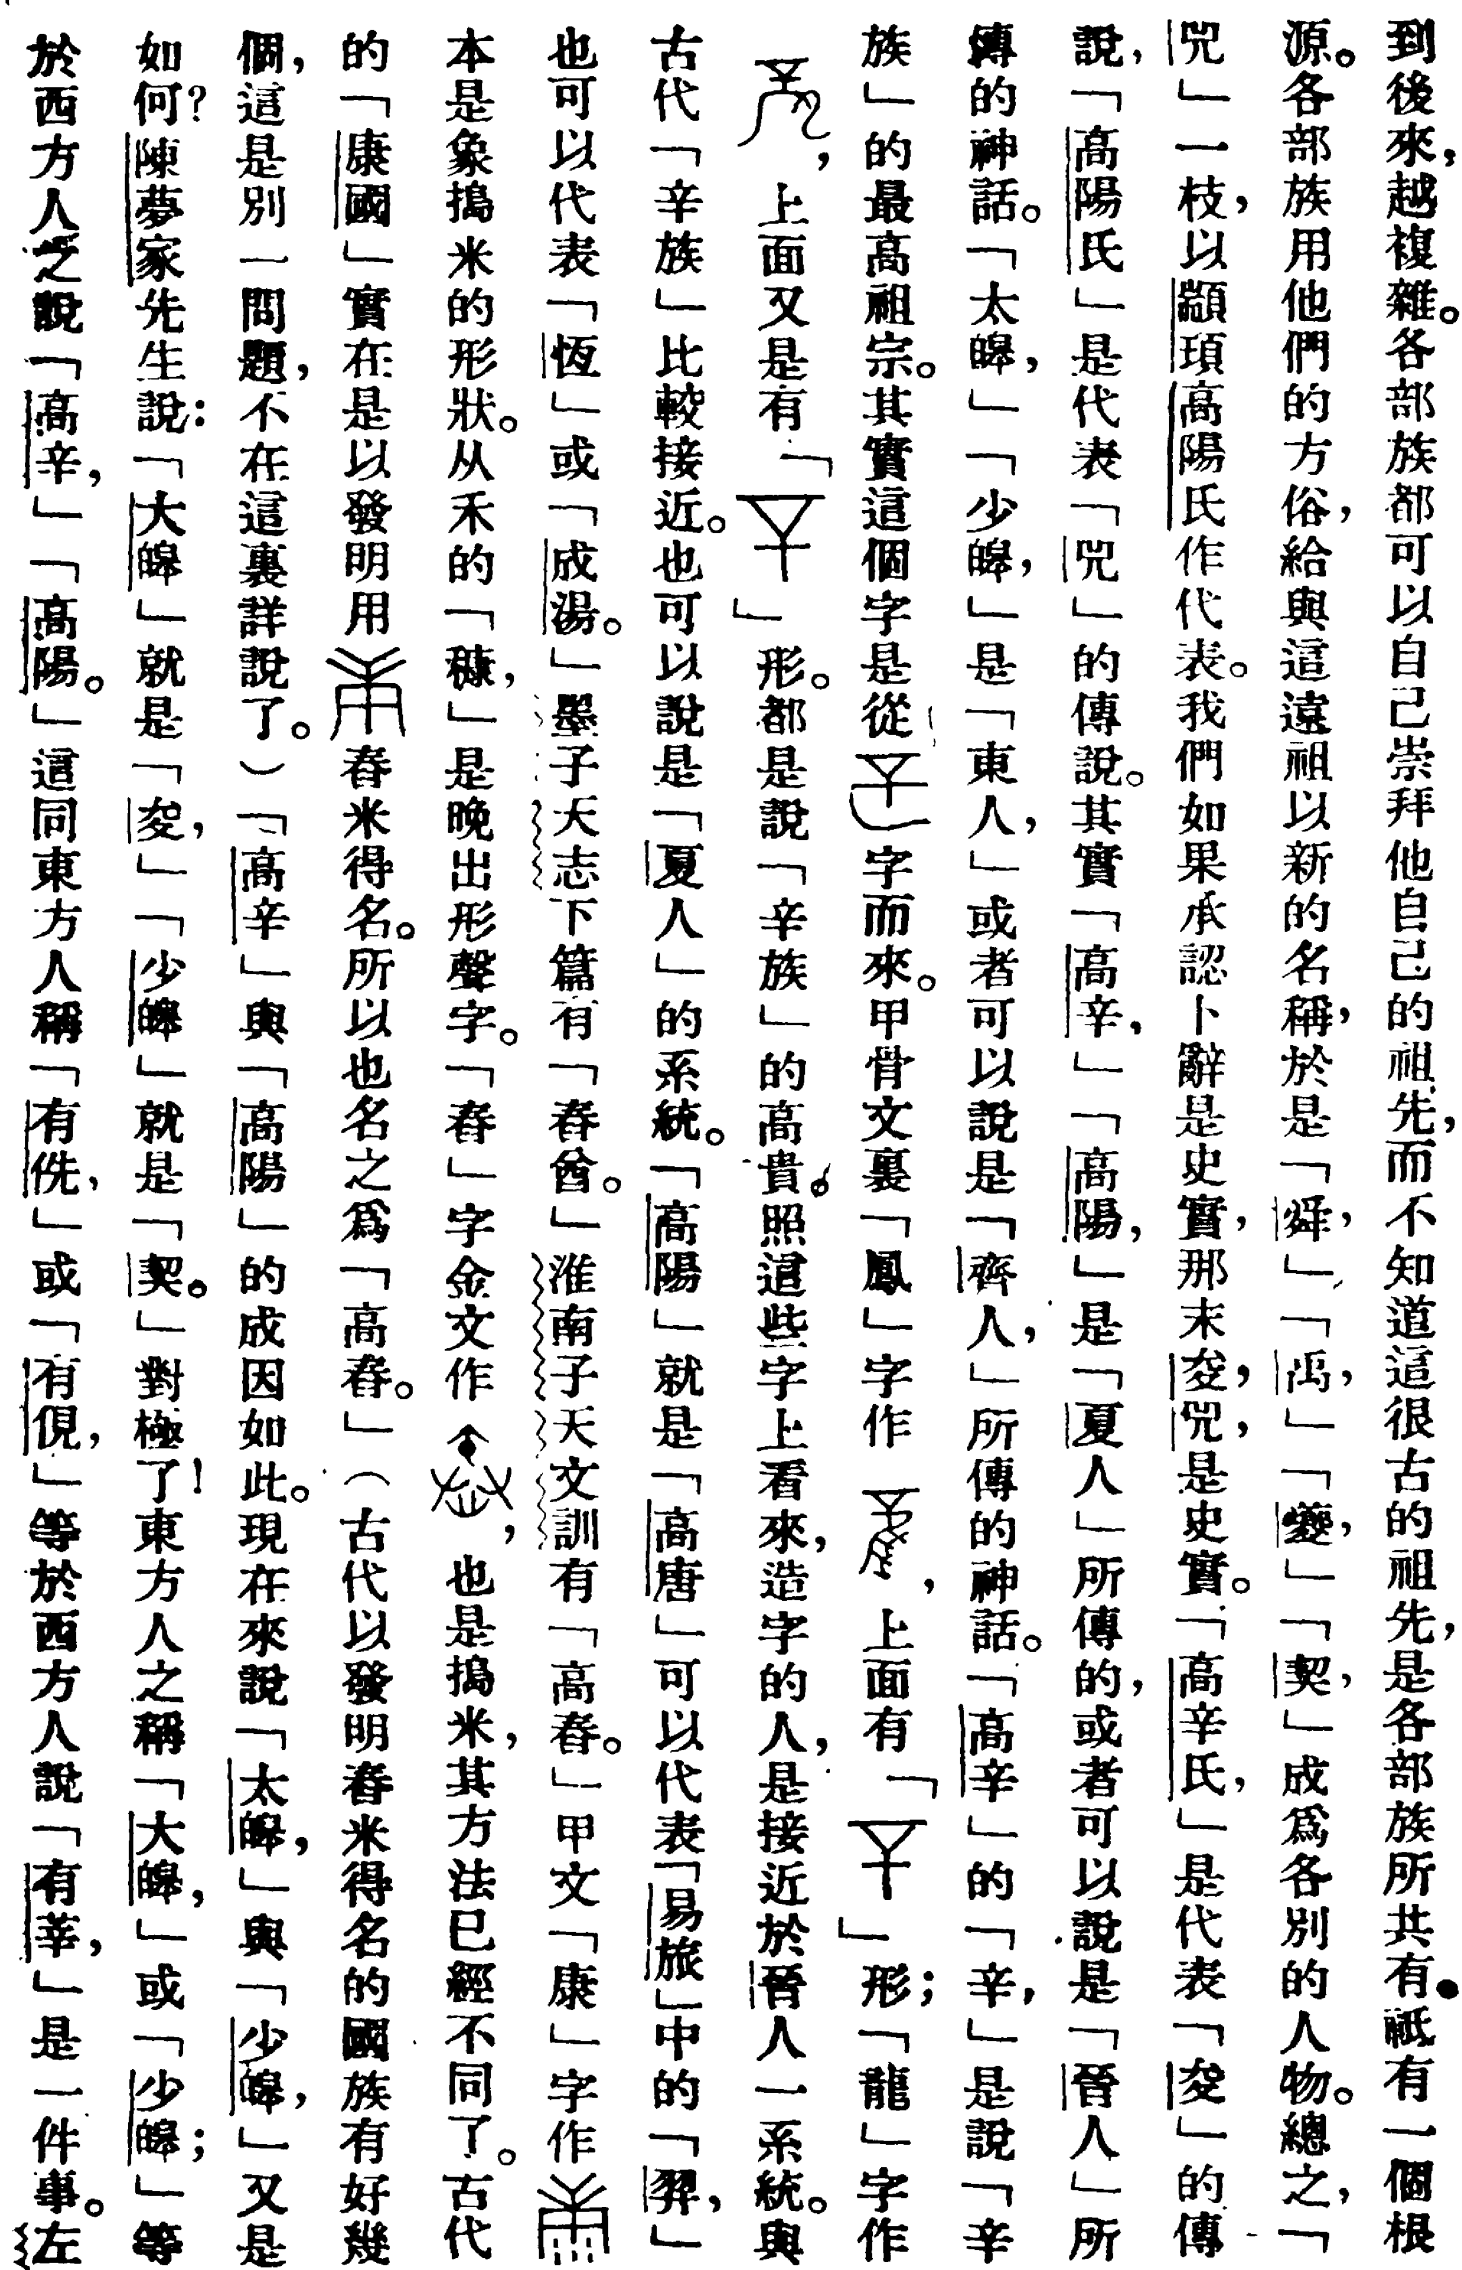 到後來，越複雜。各部族都可以自己崇拜他自己的祖先，而不知道這很古的祖先，是各部族所共有。祇有一個根
源。各部族用他們的方俗，給與這遠祖以新的名稱，於是「舜，」「禹，」「夔，」「契，」成爲各別的人物。總之，「
兕」一枝，以顓頊高陽氏作代表。我們如果承認卜辭是史實，那末夋，兕，是史實。「高辛氏，」是代表「夋」的傳
說，「高陽氏」是代表「兕」的傳說。其實「高辛，」「高陽，」是「夏人」所傳的，或者可以說是「晉人」所
傳的神話。「太皞，」「少皞，」是「東人，」或者可以說是「齊人，」所傳的神話。「高辛」的「辛，」是說「辛
族」的最高祖宗。其實這個字是從字而來。甲骨文裏「鳳」字作，上面有「」形；「龍」字作
，上面又是有「」形。都是說「辛族」的高貴。照這些字上看來，造字的人，是接近於晉人一系統。與
古代「辛族」比較接近。也可以說是「夏人」的系統。「高陽」就是「高唐」可以代表「易旅」中的「羿，」
也可以代表「恆」或「成湯。」墨子天志下篇有「舂酋。」淮南子天文訓有「高舂。」甲文「康」字作
本是象搗米的形狀。从禾的「穅，」是晚出形聲字。「舂」字金文作，也是搗米，其方法已經不同了。古代
的「康國」實在是以發明用舂米得名。所以也名之爲「高舂。」（古代以發明舂米得名的國族有好幾
個，這是別一問題，不在這裏詳說了。）「高辛」與「高陽」的成因如此。現在來說「太皞，」與「少皞，」又是
如何？陳夢家先生說：「大皞」就是「夋，」「少皞」就是「契。」對極了！東方人之稱「大皞，」或「少皞；」等
於西方人之說「高辛，」「高陽。」這同東方人稱「有侁，」或「有倪，」等於西方人說「有莘，」是一件事。左